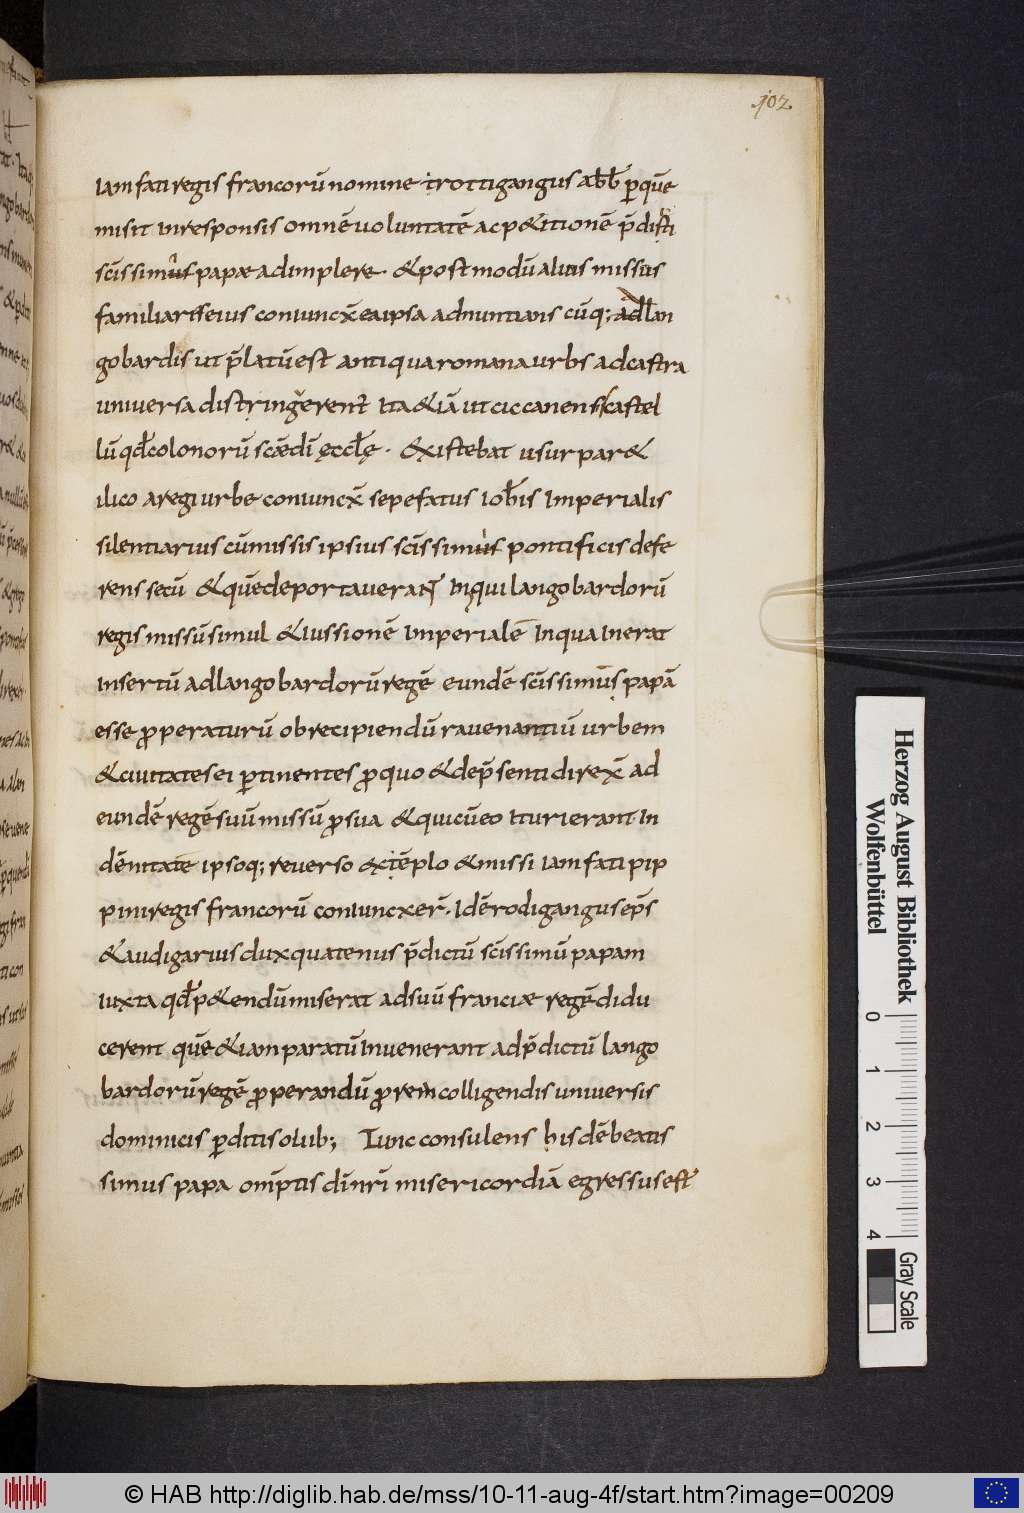 102
iamfati regis francorū nomine trottigangus abb̄ p̱quē
misit inresponsis omnē uoluntatē acp&itionē p̄dicti
sc̄issimus papæ adimplere & postmodū alius missus
familiaris eius coniuncx̄ eaipsa adnuntians cūq; adlan
gobardis ut p̄latūest antiquaromana urbs adcastra
uniuersa distringerent ita&iā ut ciccanensē castel
lū qd̄ colonorū scædī ęccl̄ę · existebat usurpar&
ilico aregiurbe coniuncx̄ sepefatus ioh̄is imperialis
silentiarius cūmissis ipsius sc̄issimus pontificis defe
rens secū & quædeportauerant inqui langobardorū
regis missūsimul & iussionē imperialē inqua inerat
insertū adlangobardorūregē eundē sc̄issimus papā
esse ꝓperaturū obrecipiendū rauenantiū urbem
& ciuitatesei p̱tinentes ꝓquo & dep̄senti direx̄ ad
eundē regē suū missū ꝓsua & quicūeo ituri erant in
dēnitate ipsoq; reuerso &cītēplo &missi iamfati pip
piniregis francorū coniuncxer̄. Idē rodigangus ep̄s
& audigarius dux quatenus p̄dictū sc̄issimū papam
iuxta qd̄ p&endū miserat adsuū franciæ regē didu
cerent quē & iam paratū inuenerant adp̄dictū lango
bardorū regē ꝓperandū ꝓrem colligendis uniuersis
dominicis p̱ditis olub; Tunc consulens hisdē beatis
simus papa om̄ptis dīnri misericordiā egressusest
Herzog August Bibliothek
Wolfenbüttel
0 1 2 3 4
Gray Scale
© HAB http://diglib.hab.de/mss/10-11-aug-4f/start.htm?image=00209